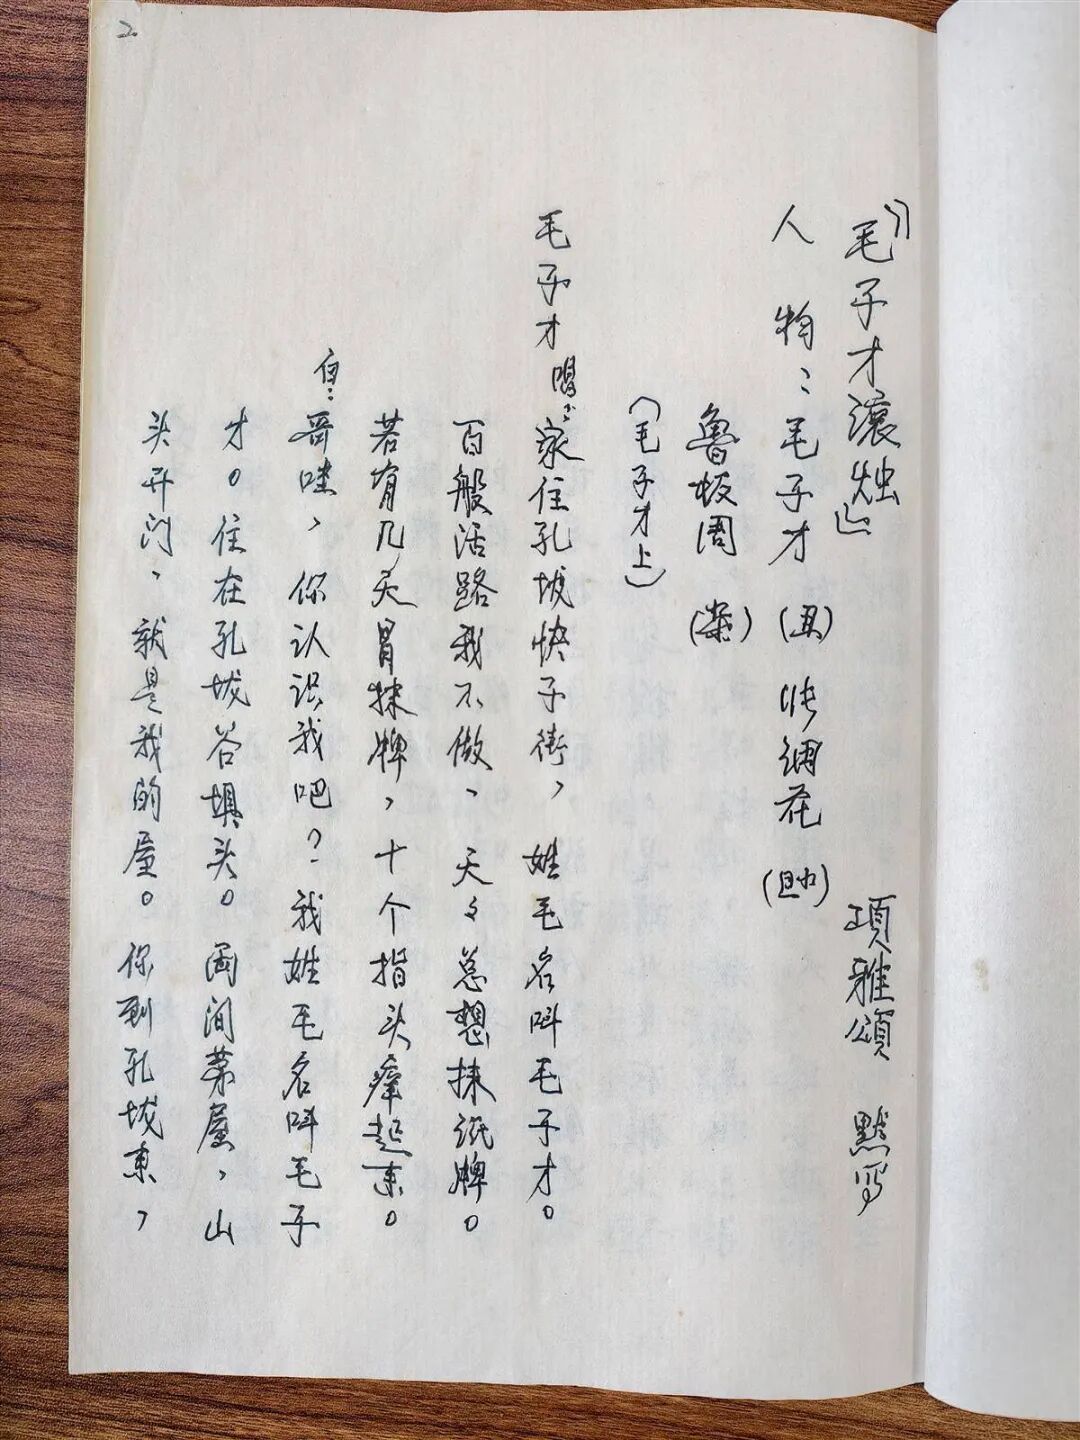 2
《毛子才滚烛》 項雅頌 默写
人 物：毛子才（丑）张细花（旦）
魯板周（杂）
（毛子才上）
毛子才唱：家住孔城快子街，姓毛名叫毛子才。
百般活路我不做，天々总想抹纸牌。
若有几天冒抹牌，十个指头痒起来。
白：哥哇，你认识我吧？我姓毛名叫毛子
才。住在孔城谷填头。両间茅屋，山
头开门，就是我的屋。你到孔城来，